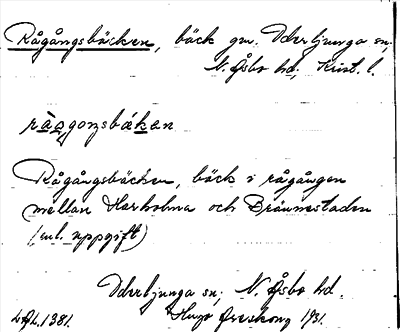 Rågångsbäcken, bäck gm. Oderljunga sn,
N. Åsbo hd, Krist. l.
rågonsbäkan
Rågångsbäcken, bäck i rågången
mellan Harholma och Brännestaden
(enl. uppgift)
Oderljunga sn, N. Åsbo hd.
Hugo Areskoug 1931.